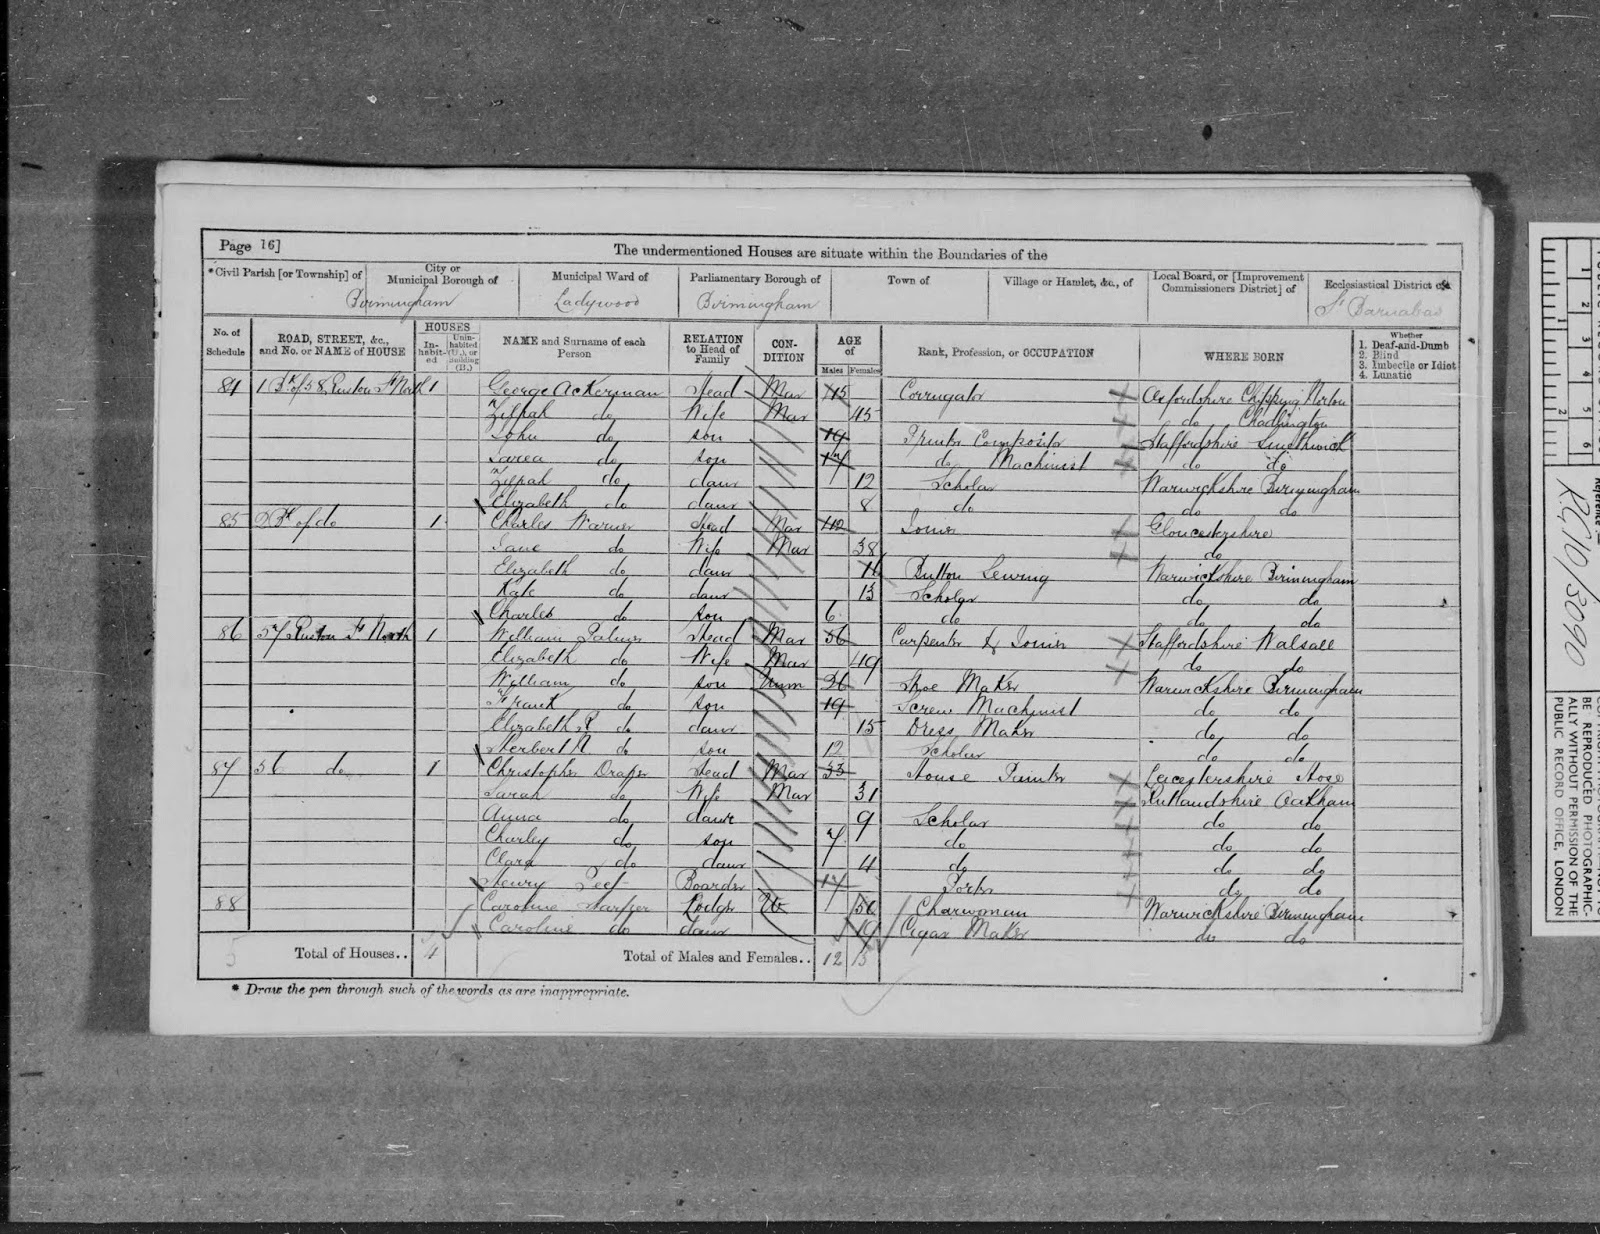 Page 16]
The undermentioned Houses are situate within the Boundaries of the
* Civil Parish [or Township] of
City or Municipal Borough of
Municipal Ward of
Parliamentary Borough of
Town of
Village or Hamlet, &c., of
Local Board, or [Improvement Commissioners District] of
Ecclesiastical District of
Birmingham Ladywood Birmingham St Barnabas
No. of Schedule
ROAD, STREET, &c., and No. or NAME of HOUSE
HOUSES
In-habit-ed
Unin-habited (U.), or Building (B.)
NAME and Surname of each Person
RELATION to Head of Family
CON-DITION
AGE of
Males Females
Rank, Profession, or OCCUPATION
WHERE BORN
Whether
1. Deaf-and-Dumb
2. Blind
3. Imbecile or Idiot
4. Lunatic
84 1 Bk of 58 Ruston St North 1 George Ackerman Head Mar 45 Corrugator Oxfordshire Chipping Norton
Zilpah do Wife Mar 45 do Chadlington
John do son 19 Printer Compositor Staffordshire Smethwick
do son 17 do Machinist do do
Zilpah do daur 12 Scholar Warwickshire Birmingham
Elizabeth do daur 8 do do do
85 2 Bk of do 1 Charles Warner Head Mar 40 Joiner Gloucestershire
Jane do Wife Mar 38 do
Elizabeth do daur 16 Button Sewing Warwickshire Birmingham
Kate do daur 13 Scholar do do
Charles do son 6 do do do
86 57 Ruston St North 1 William Palmer Head Mar 56 Carpenter & Joiner Staffordshire Walsall
Elizabeth do Wife Mar 49 do do
William do son Unm 26 Shoe Maker Warwickshire Birmingham
Frank do son 19 Screw Machinist do do
Elizabeth R do daur 15 Dress Maker do do
Herbert N. do son 12 Scholar do do
87 56 do 1 Christopher Draper Head Mar 33 House Painter Leicestershire Hose
Sarah do Wife Mar 31 Rutlandshire Oakham
Anna do daur 9 Scholar do do
Charley do son 7 do do do
Clara do daur 4 do do do
Henry Peet Boarder 17 Porter do do
88 Caroline Harper Lodger W 50 Charwoman Warwickshire Birmingham
Caroline do daur 19 Cigar Maker do do
5 Total of Houses.. 4 Total of Males and Females.. 12 13
* Draw the pen through such of the words as are inappropriate.
1 2 3 4 5 6
1 2
RG 10/3090
BE REPRODUCED PHOTOGRAPHIC-
ALLY WITHOUT PERMISSION OF THE
PUBLIC RECORD OFFICE, LONDON